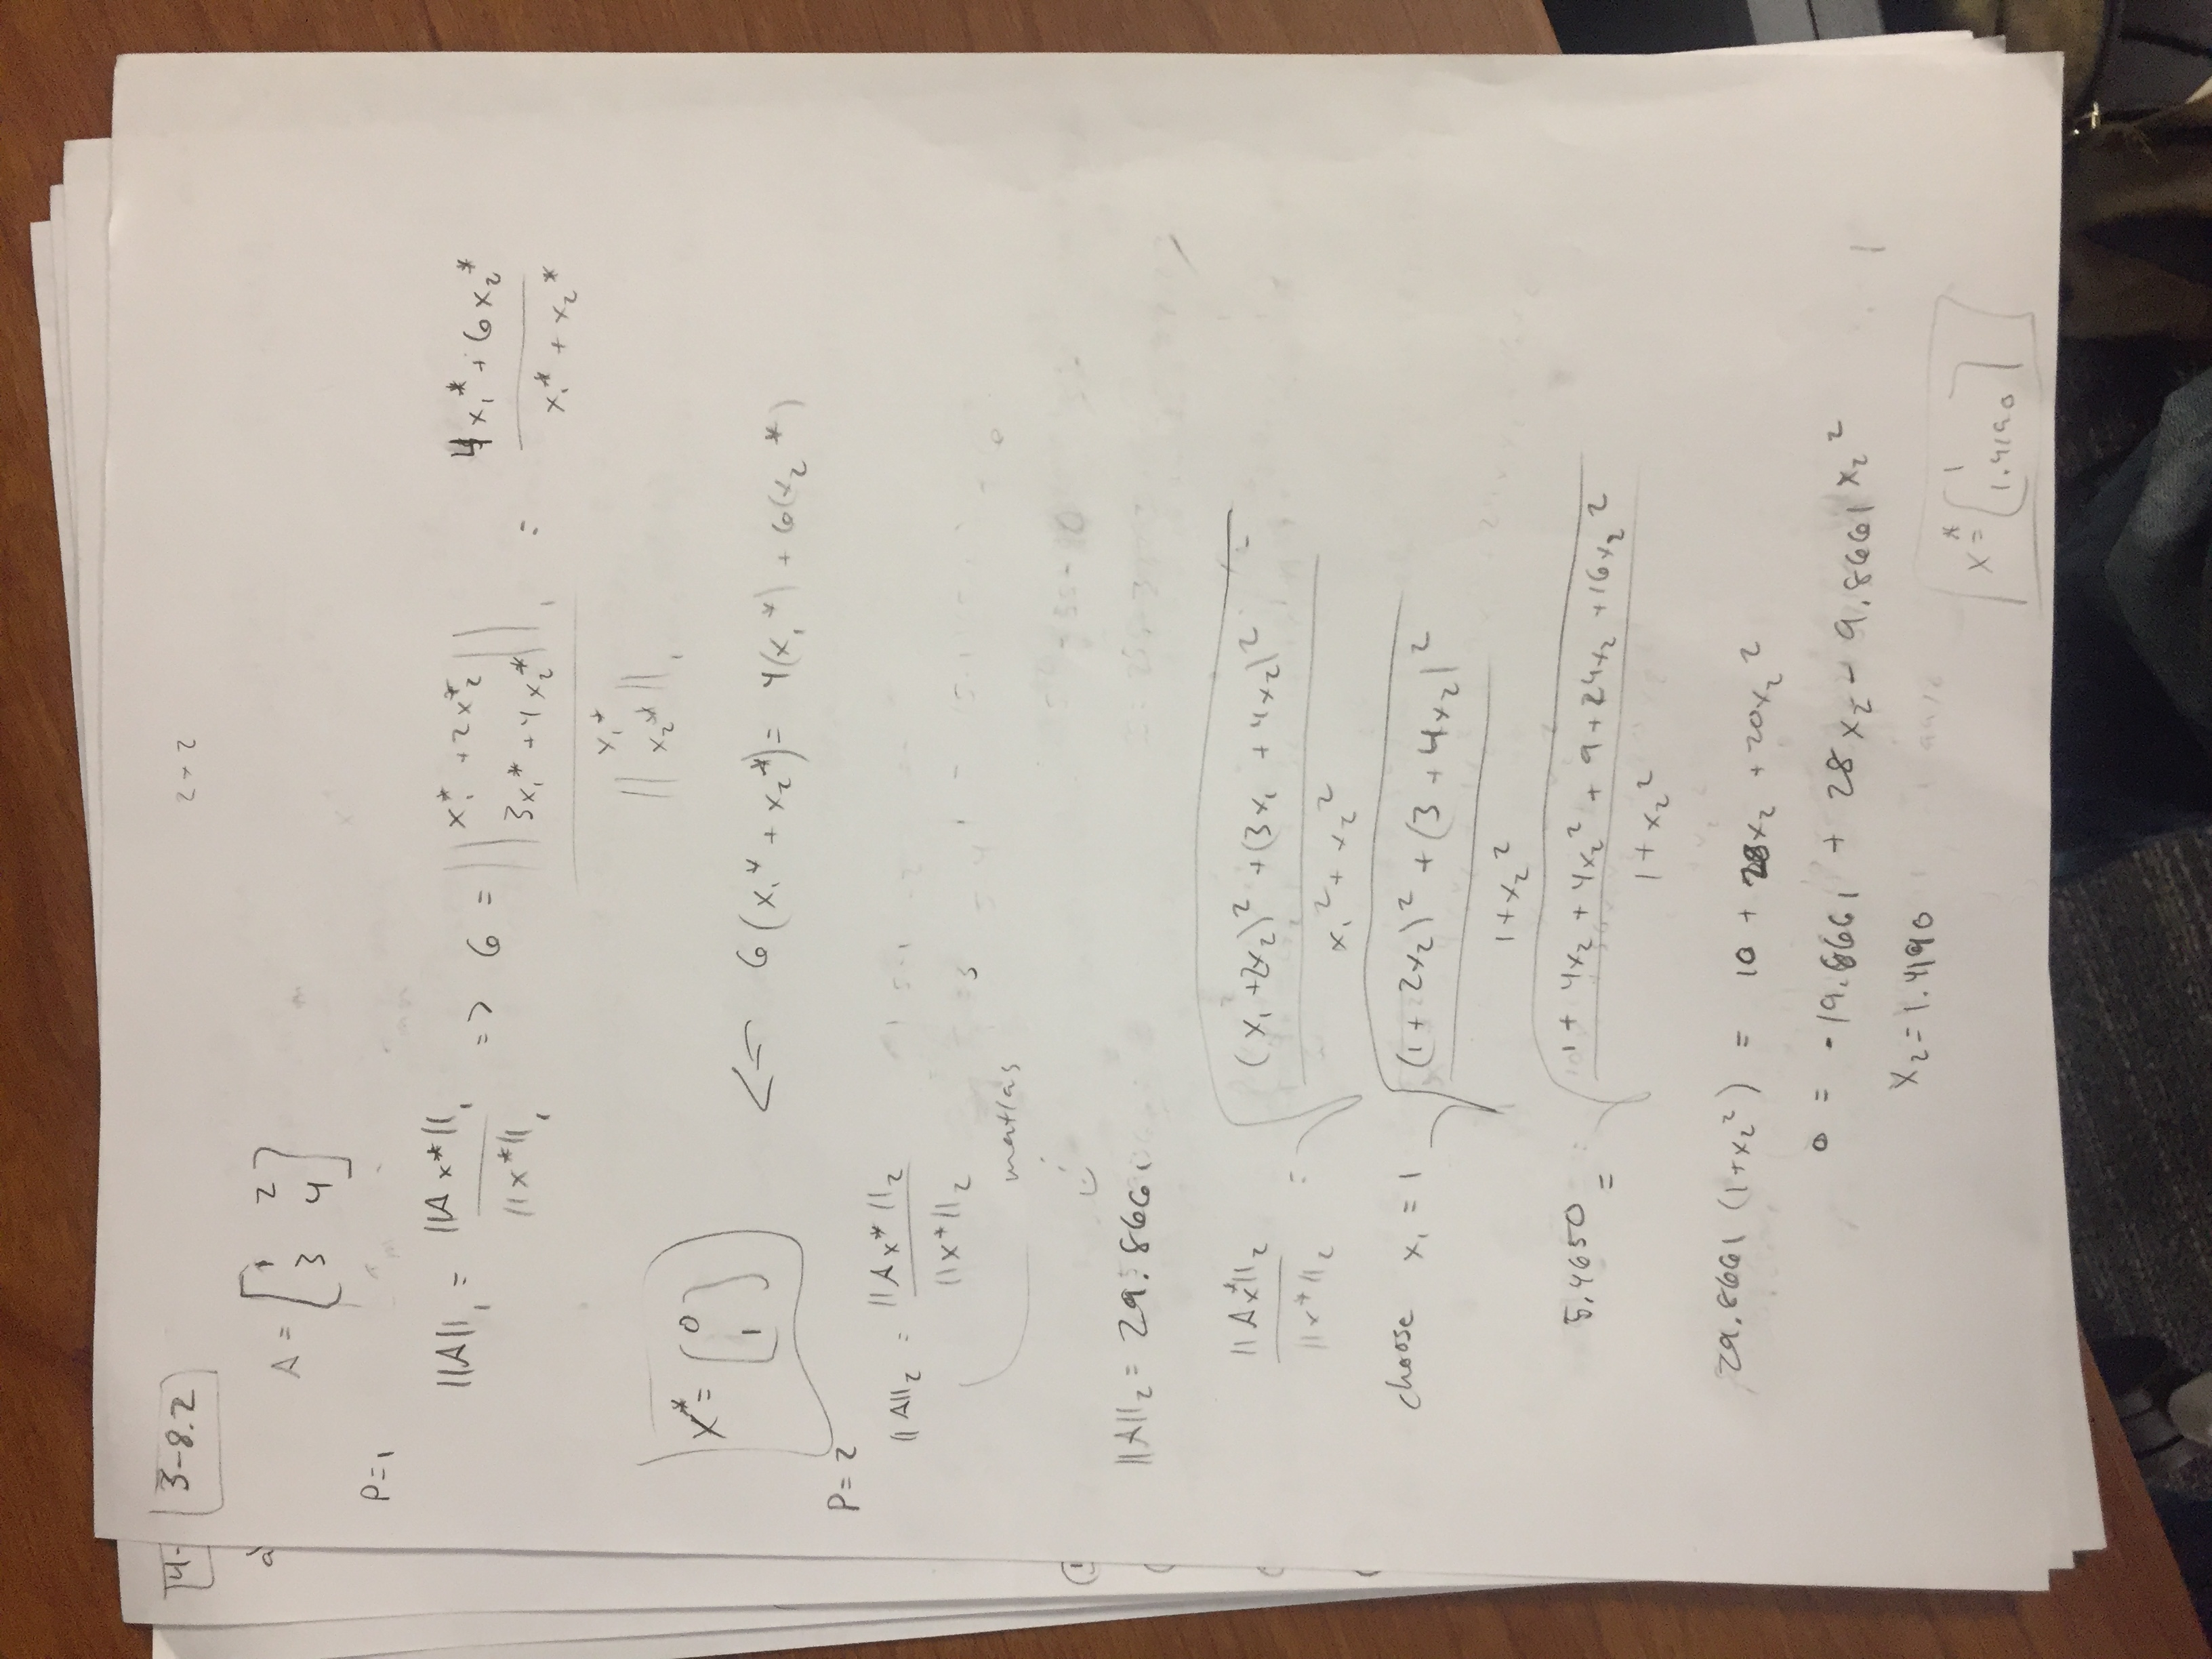 4-
3-8.2
2 × 2
a)
A = [1 2
3 4]
P=1
||A||₁ = ||Ax*||₁ / ||x*||₁ => 6 = || x₁* + 2x₂* 3x₁* + 4x₂* ||₁ / || x₁* x₂* ||₁ = 4x₁* + 6x₂* / x₁* + x₂*
x* = [0
1]
<= 6(x₁* + x₂*) = 4(x₁*) + 6(x₂*)
P=2
||A||₂ = ||Ax*||₂ / ||x*||₂
matlab
||A||₂ = 29.8661
||Ax*||₂ / ||x*||₂ = √((x₁+2x₂)² + (3x₁ + 4x₂)² / x₁² + x₂²) =
choose x₁ = 1 √((1 + 2x₂)² + (3 + 4x₂)² / 1+x₂²)
5.4650 = √(1 + 4x₂ + 4x₂² + 9 + 24x₂ + 16x₂² / 1 + x₂²)
29.8661 (1+x₂²) = 10 + 28x₂ + 20x₂²
0 = -19.8661 + 28x₂ - 9.8661x₂²
x₂ = 1.4190
x* = [1
1.4190]